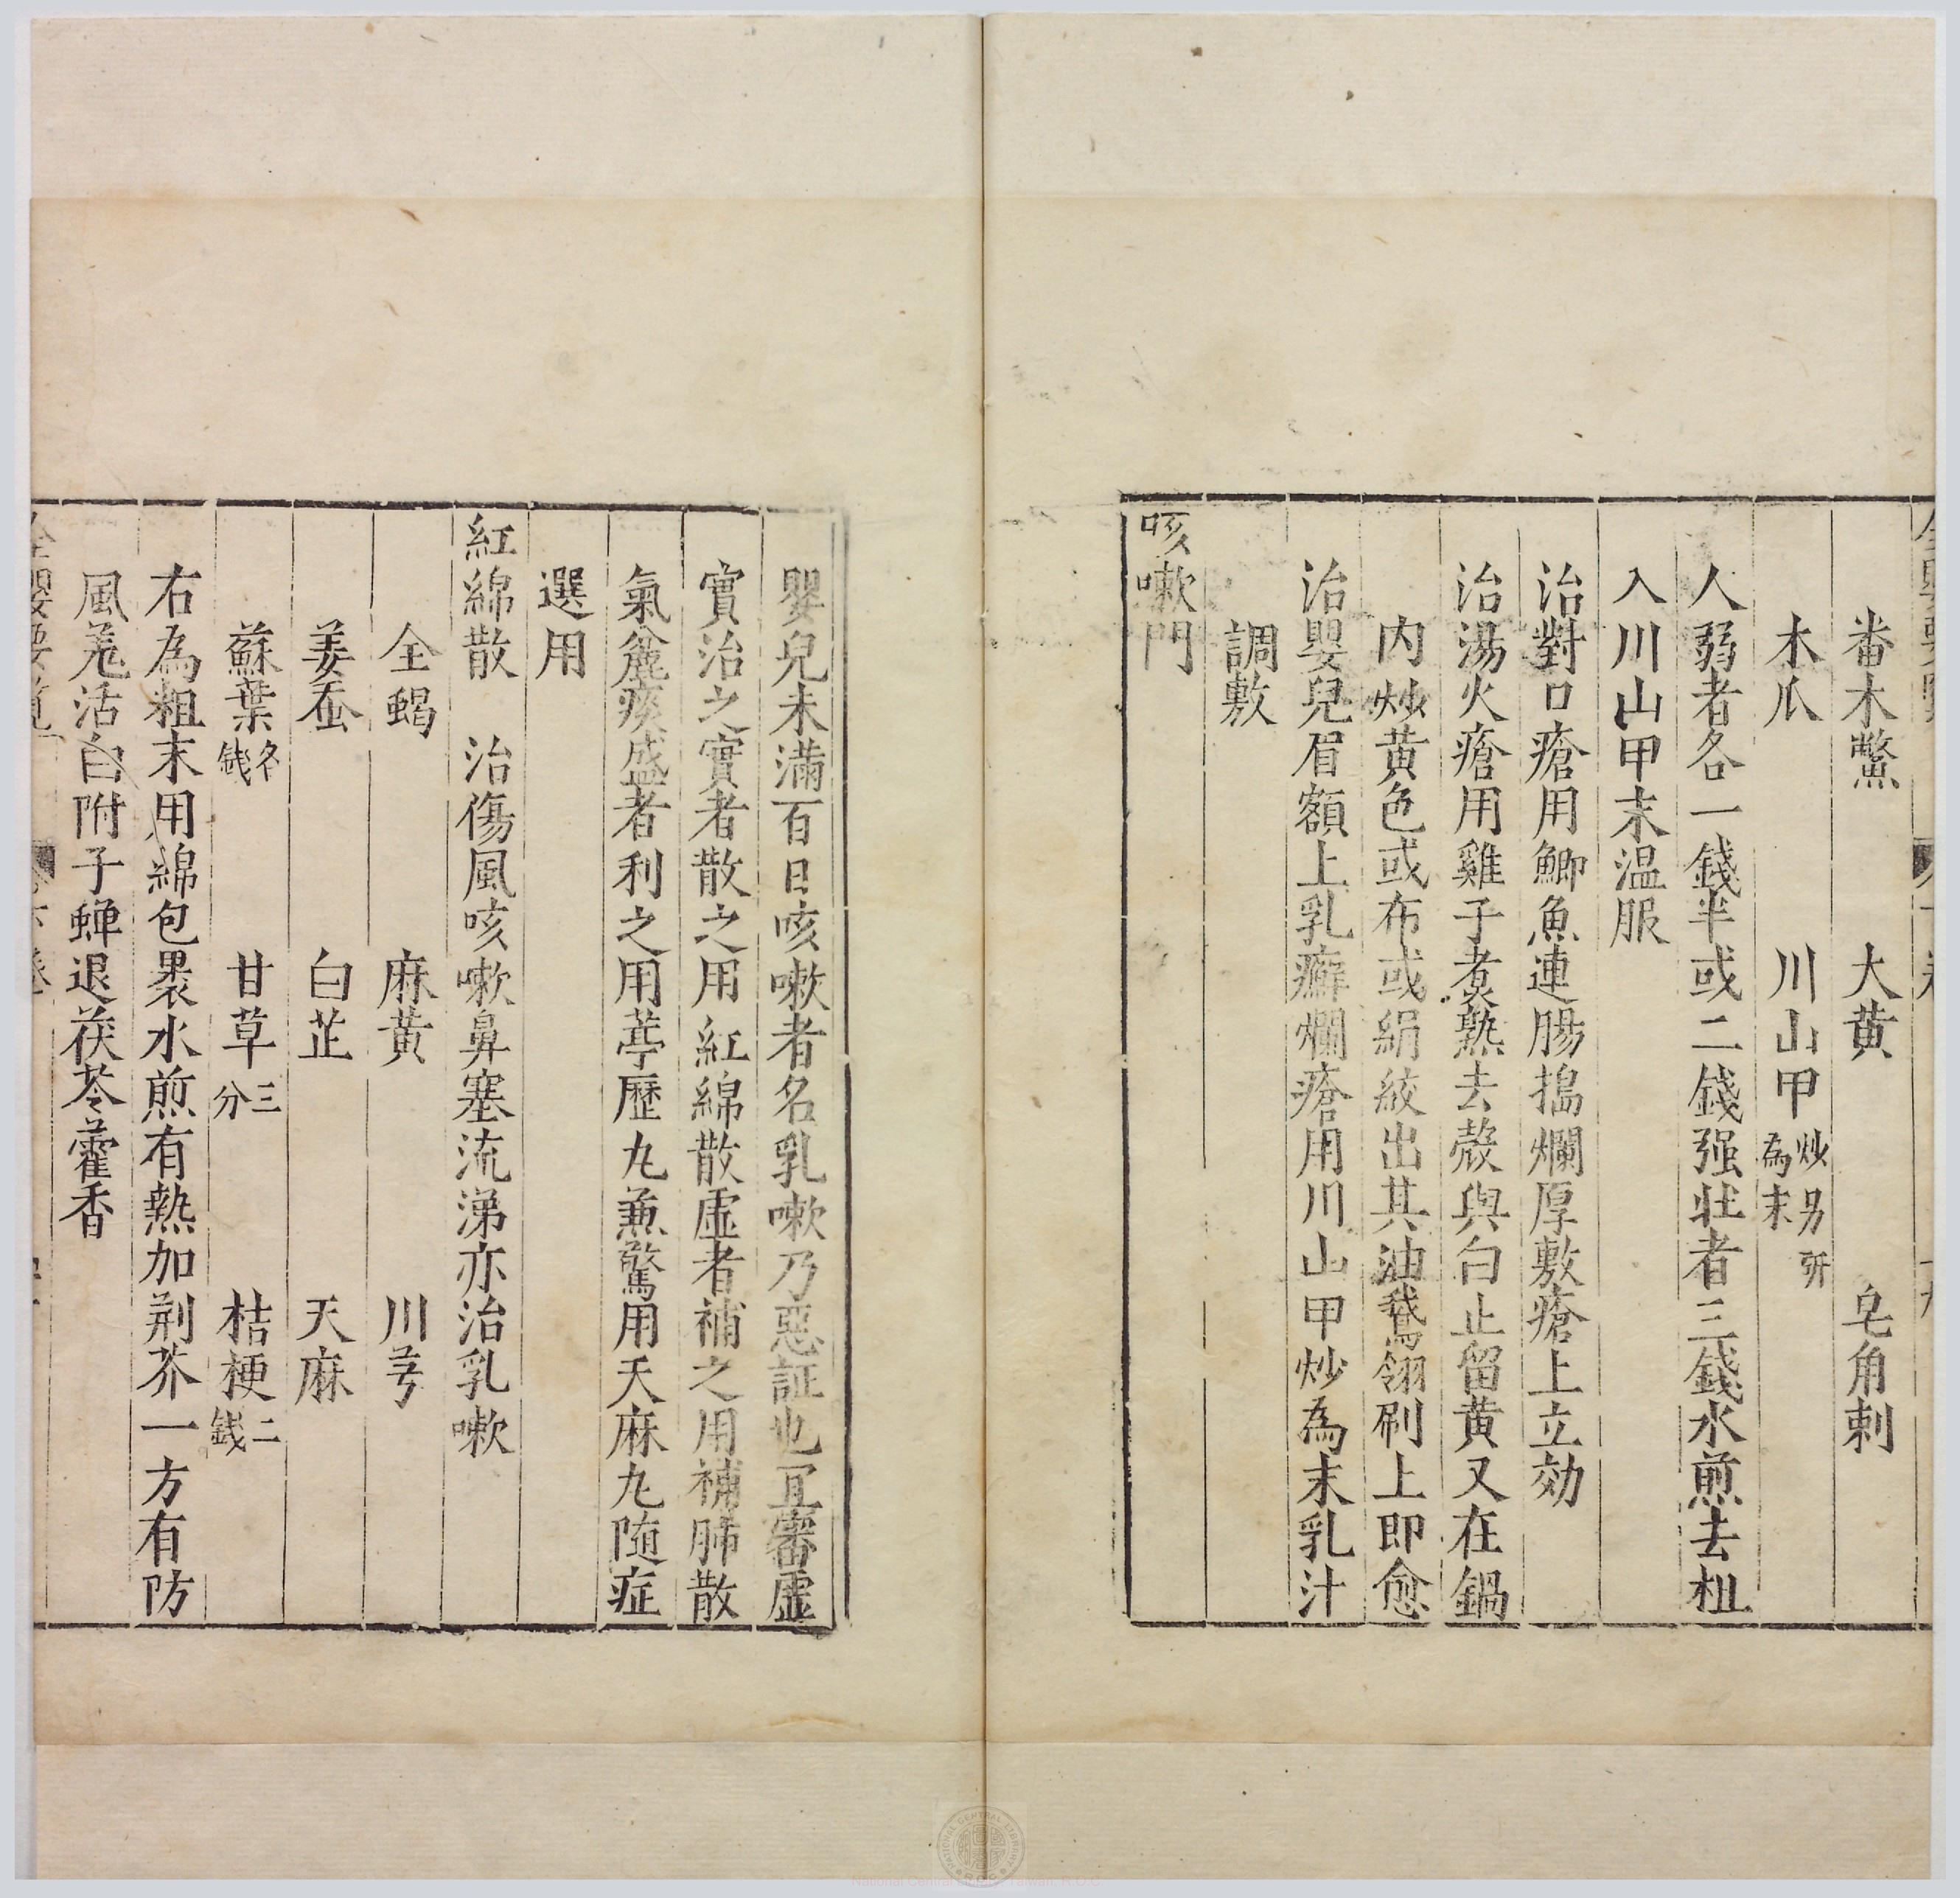 番木鱉　大黄　皂角刺
木瓜　川山甲炒另研為末
人弱者各一錢半或二錢强壯者三錢水煎去柤
入川山甲末温服
治對口瘡用鯽魚連腸搗爛厚敷瘡上立効
治湯火瘡用雞子煮熟去殼與白止留黄又在鍋
内炒黄色或布或絹絞出其油鵞翎刷上即愈
治嬰兒眉額上乳癬爛瘡用川山甲炒為末乳汁
調敷
咳嗽門
嬰兒未滿百日咳嗽者名乳嗽乃惡証也冝審虛
實治之實者散之用紅綿散虛者補之用補肺散
氣麄痰盛者利之用葶歷九兼驚用天麻九随症
選用
紅綿散　治傷風咳嗽鼻塞流涕亦治乳嗽
全蝎　麻黄　川芎
姜蚕　白芷　天麻
蘇葉各錢　甘草三分　桔梗二錢
右為粗末用綿包裹水煎有熱加荆芥一方有防
風羗活白附子蟬退茯苓藿香